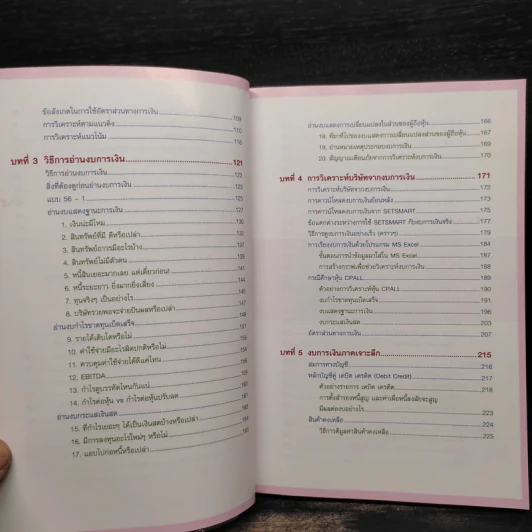 ข้อสังเกตในการใช้อัตราส่วนทางการเงิน 109
การวิเคราะห์ตามแนวดิ่ง 110
การวิเคราะห์แนวโน้ม 116
บทที่ 3 วิธีการอ่านงบการเงิน 121
วิธีการอ่านงบการเงิน
สิ่งที่ต้องดูก่อนอ่านงบการเงิน
แบบ 56 - 1
อ่านงบแสดงฐานะการเงิน
1. เงินน่ะมีไหม
2. สินทรัพย์ที่มี ดีหรือเปล่า
3. สินทรัพย์ถาวรมีอะไรบ้าง
4. สินทรัพย์ไม่มีตัวตน
5. หนี้สินเยอะมากเลย แต่เดี๋ยวก่อน!
6. หนี้ระยะยาว ยิ่งมากยิ่งเสี่ยง
7. ทุนจริงๆ เป็นอย่างไร
8. บริษัทรวยพอจะจ่ายปันผลหรือเปล่า
อ่านงบกำไรขาดทุนเบ็ดเสร็จ
9. รายได้เติบโตหรือไม่
10. ค่าใช้จ่ายมีอะไรผิดปกติหรือไม่
11. ควบคุมค่าใช้จ่ายได้ดีแค่ไหน
12. EBITDA
13. กำไรสูบรรทัดไหนกันแน่
14. กำไรต่อหุ้น vs กำไรต่อหุ้นปรับลด
อ่านงบกระแสเงินสด
15. ที่กำไรเยอะๆ ได้เป็นเงินสดบ้างหรือเปล่า
16. มีการลงทุนอะไรใหม่ๆ หรือไม่
17. แอบไปก่อหนี้หรือเปล่า
อ่านงบแสดงการเปลี่ยนแปลงในส่วนของผู้ถือหุ้น 166
18. ที่มาที่ไปของงบแสดงการเปลี่ยนแปลงส่วนของผู้ถือหุ้น 167
19. อ่านหมายเหตุประกอบงบการเงิน 169
20. สัญญาณเตือนภัยจากการวิเคราะห์งบการเงิน 169
บทที่ 4 การวิเคราะห์บริษัทจากงบการเงิน 171
การวิเคราะห์บริษัทจากงบการเงิน 172
การดาวน์โหลดงบการเงินย้อนหลัง 173
การดาวน์โหลดงบการเงินจาก SETSMART 175
ข้อแตกต่างระหว่างการใช้ SETSMART กับงบการเงินจริง 177
วิธีการดูงบการเงินอย่างเร็ว (คร่าวๆ) 179
การเรียงงบการเงินด้วยโปรแกรม MS Excel 184
ขั้นตอนการนำข้อมูลมาใส่ใน MS Excel 187
การสร้างกราฟเพื่อช่วยวิเคราะห์งบการเงิน 188
กรณีศึกษาหุ้น CPALL 189
ตัวอย่างการวิเคราะห์หุ้น CPALL 190
งบกำไรขาดทุนเบ็ดเสร็จ 191
งบแสดงฐานะการเงิน 196
งบกระแสเงินสด 203
อัตราส่วนทางการเงิน 207
บทที่ 5 งบการเงินภาคเจาะลึก 215
สมการทางบัญชี 216
หลักบัญชีคู่ เดบิต เครดิต (Debit Credit) 217
ตัวอย่างรายการ เดบิต เครดิต 218
การตั้งสำรองหนี้สูญ และค่าเผื่อหนี้สงสัยจะสูญ
มีผลต่องบอย่างไร 223
สินค้าคงเหลือ 224
วิธีการตีมูลค่าสินค้าคงเหลือ 225